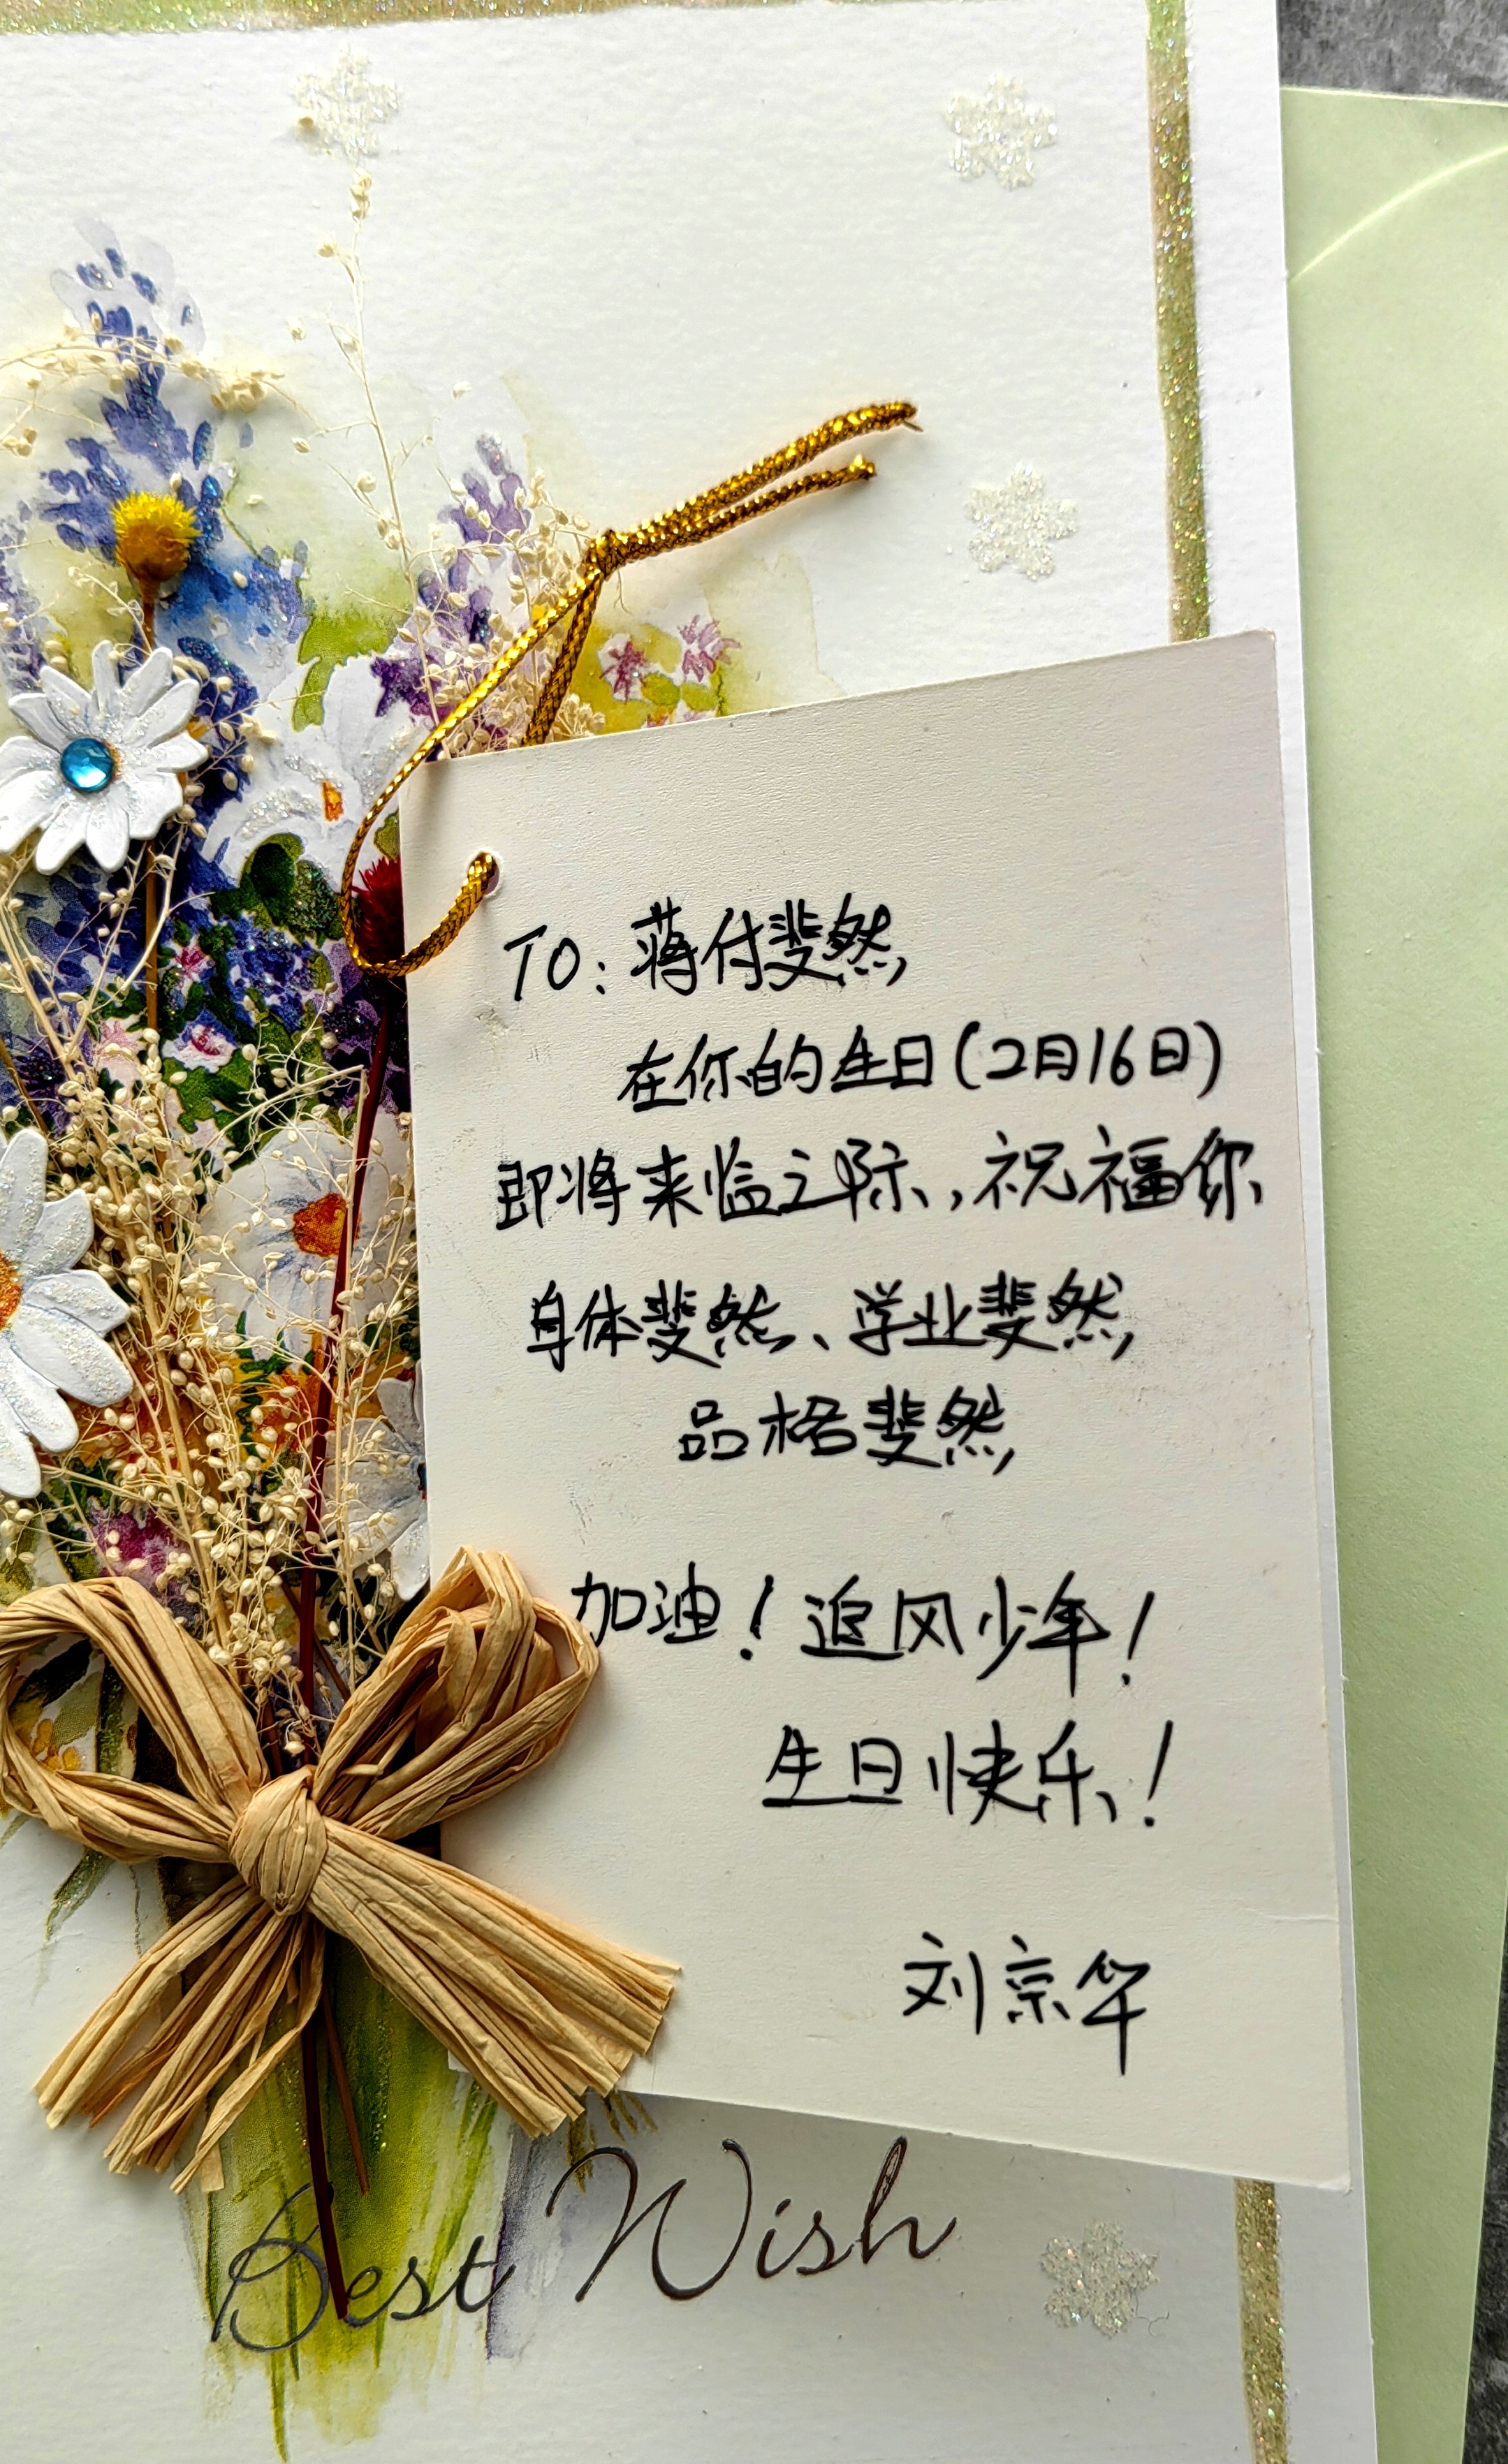 TO：蒋付斐然
在你的生日(2月16日)
即将来临之际，祝福你
身体斐然、学业斐然，
品格斐然
加油！追风少年！
生日快乐！
刘宗华
Best Wish